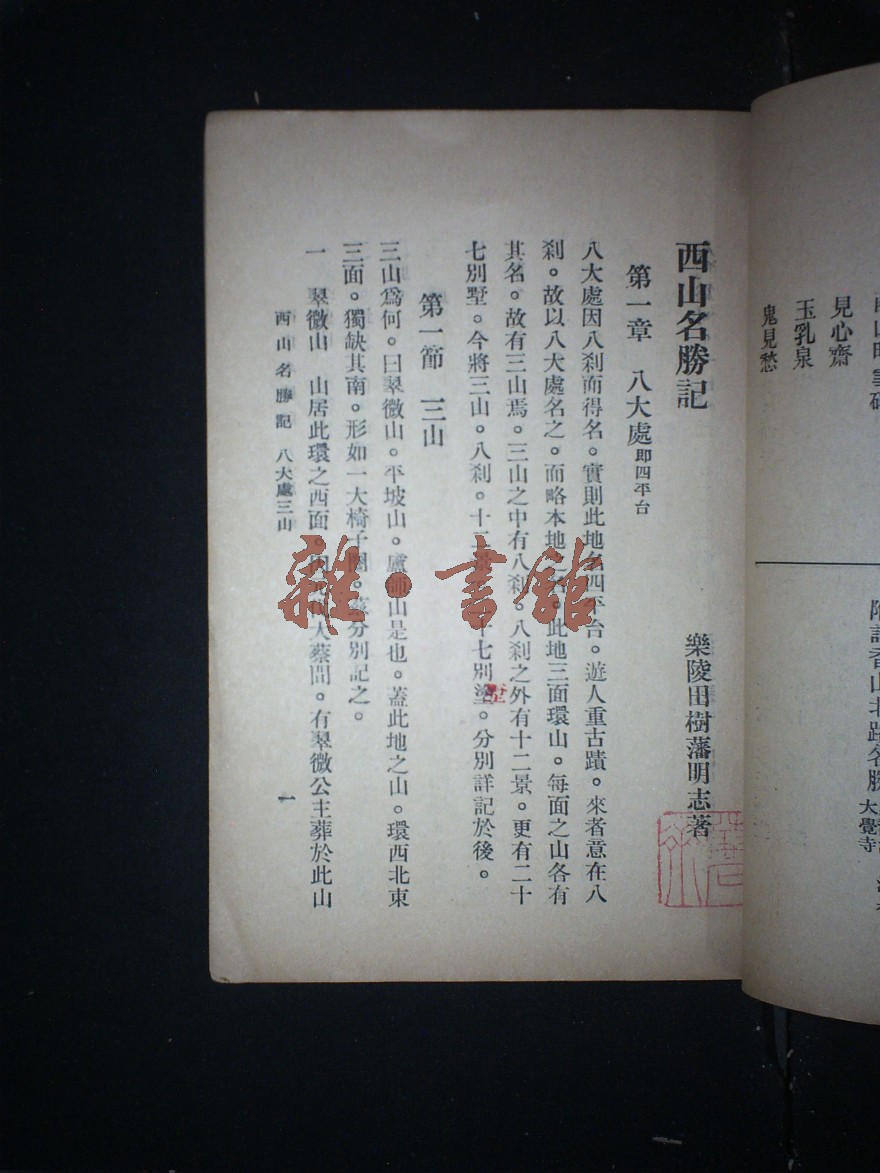 見心齋
玉乳泉
鬼見愁
大覺寺
西山名勝記
樂陵田樹藩明志著
第一章 八大處即四平台
八大處因八剎而得名。實則此地名四平台。遊人重古蹟。來者意在八
剎。故以八大處名之。而略本地之名。此地三面環山。每面之山各有
其名。故有三山焉。三山之中有八剎。八剎之外有十二景。更有二十
七別墅。今將三山。八剎。十二景。二十七別塗。分別詳記於後。
第一節 三山
三山爲何。曰翠微山。平坡山。盧師山是也。蓋此地之山。環西北東
三面。獨缺其南。形如一大椅子圈。茲分別記之。
一 翠微山 山居此環之西面。人蔡間。有翠微公主葬於此山
西山名勝記 八大處三山
一
雜·書館